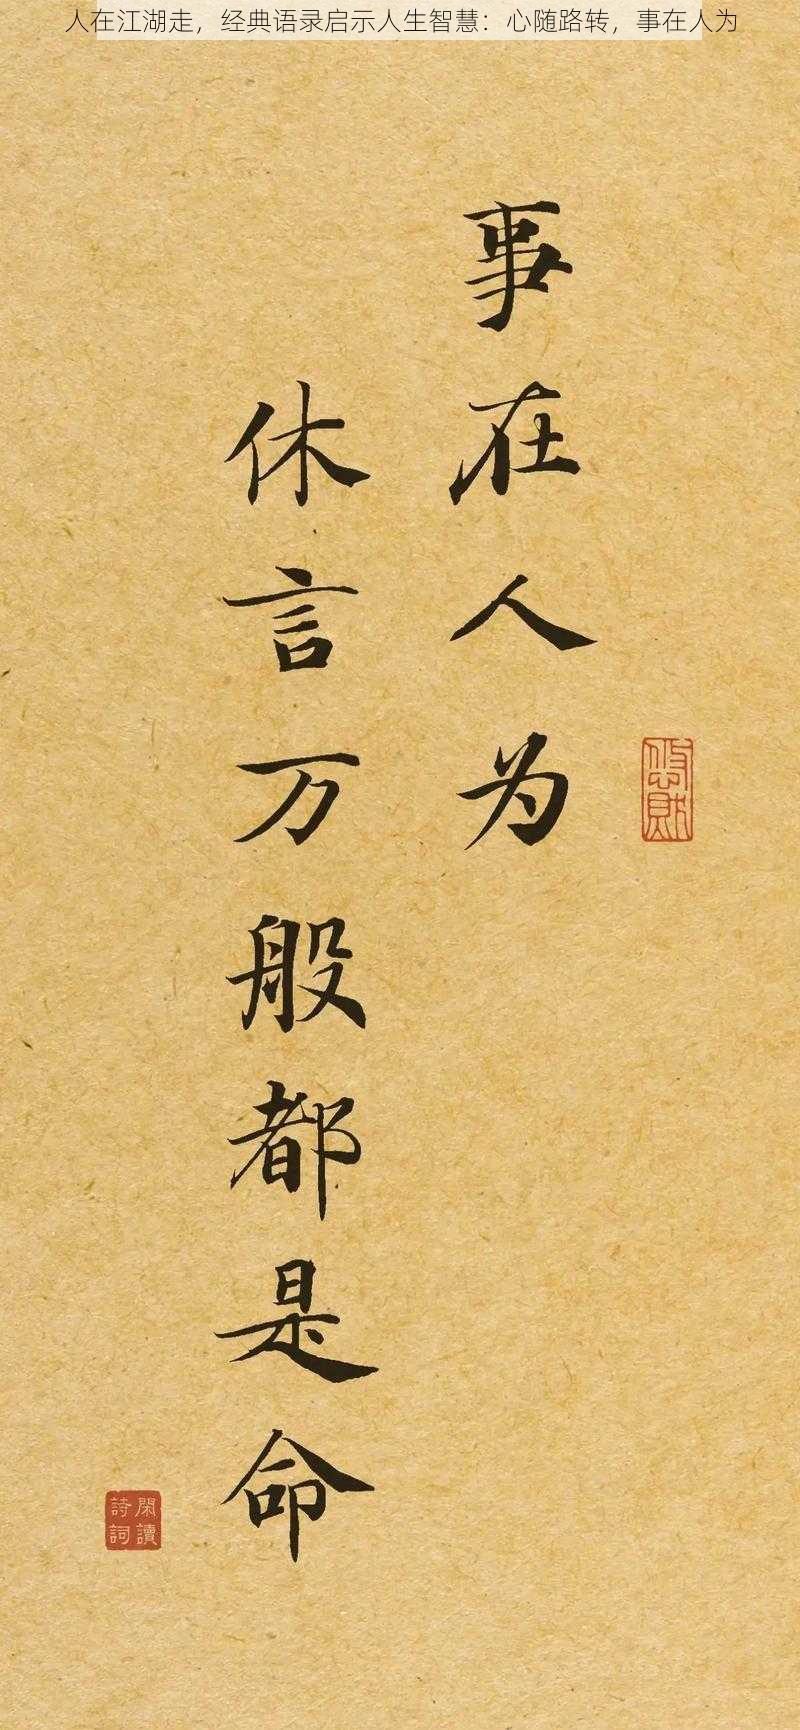 人在江湖走，经典语录启示人生智慧：心随路转，事在人为
事在人为
休言万般都是命
閑讀
詩詞